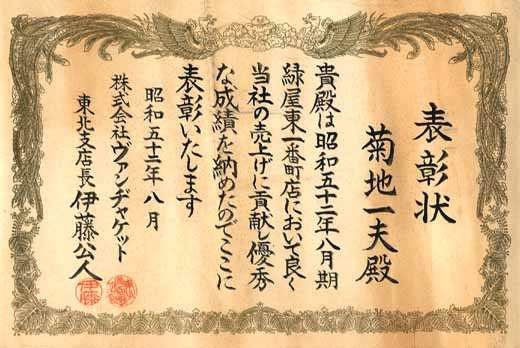 表彰状
菊地一夫殿
貴殿は昭和五十二年八月期
緑屋東一番町店において良く
当社の売上げに貢献し優秀
な成績を納めたのでここに
表彰いたします
昭和五十二年八月
株式会社ヴァンヂャケット
東北支店長 伊藤公人